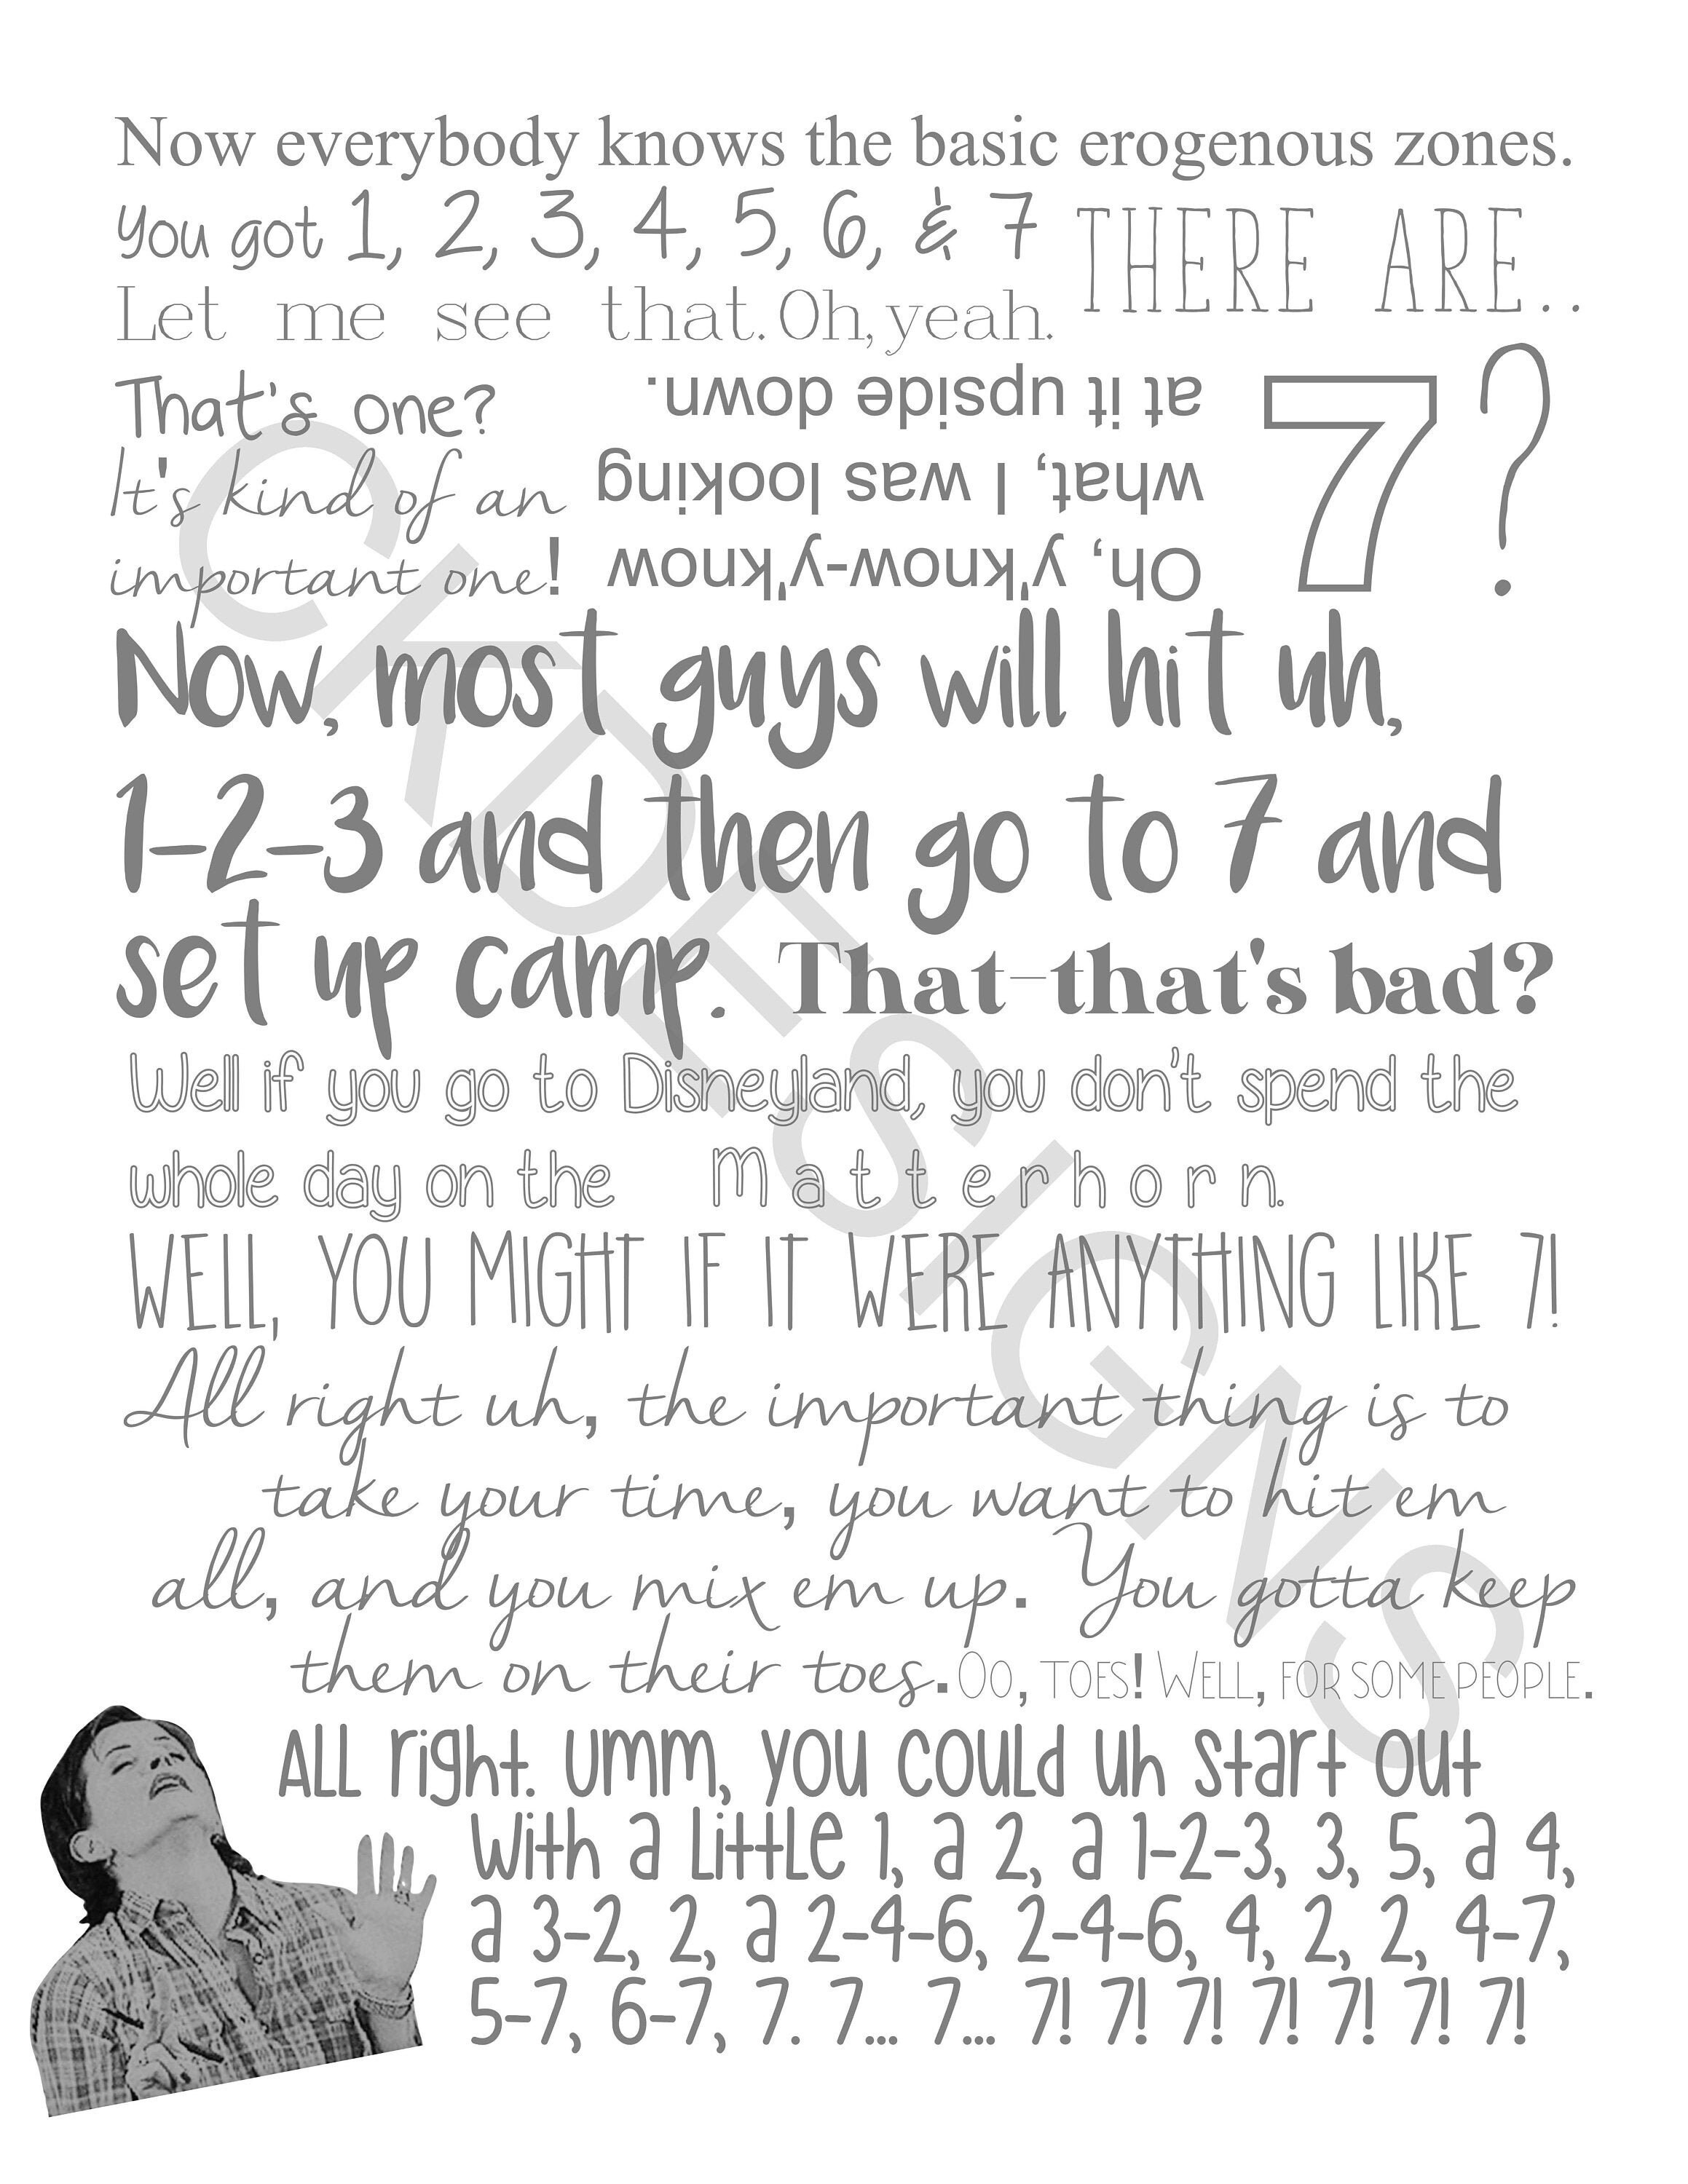 Now everybody knows the basic erogenous zones.
You got 1, 2, 3, 4, 5, 6, & 7
THERE ARE..
7?
Let me see that. Oh, yeah.
That's one?
It's kind of an
important one!
Oh, y'know-y'know
what, I was looking
at it upside down.
Now, most guys will hit uh,
1-2-3 and then go to 7 and
set up camp. That-that's bad?
Well if you go to Disneyland, you don't spend the
whole day on the Matterhorn.
WELL, YOU MIGHT IF IT WERE ANYTHING LIKE 7!
All right uh, the important thing is to
take your time, you want to hit em
all, and you mix em up. You gotta keep
them on their toes. Oo, toes! Well, for some people.
ALL right. umm, you couLd uh start out
With a LittLe 1, a 2, a 1-2-3, 3, 5, a 4,
a 3-2, 2, a 2-4-6, 2-4-6, 4, 2, 2, 4-7,
5-7, 6-7, 7. 7... 7... 7! 7! 7! 7! 7! 7! 7!
CKDESIGNS